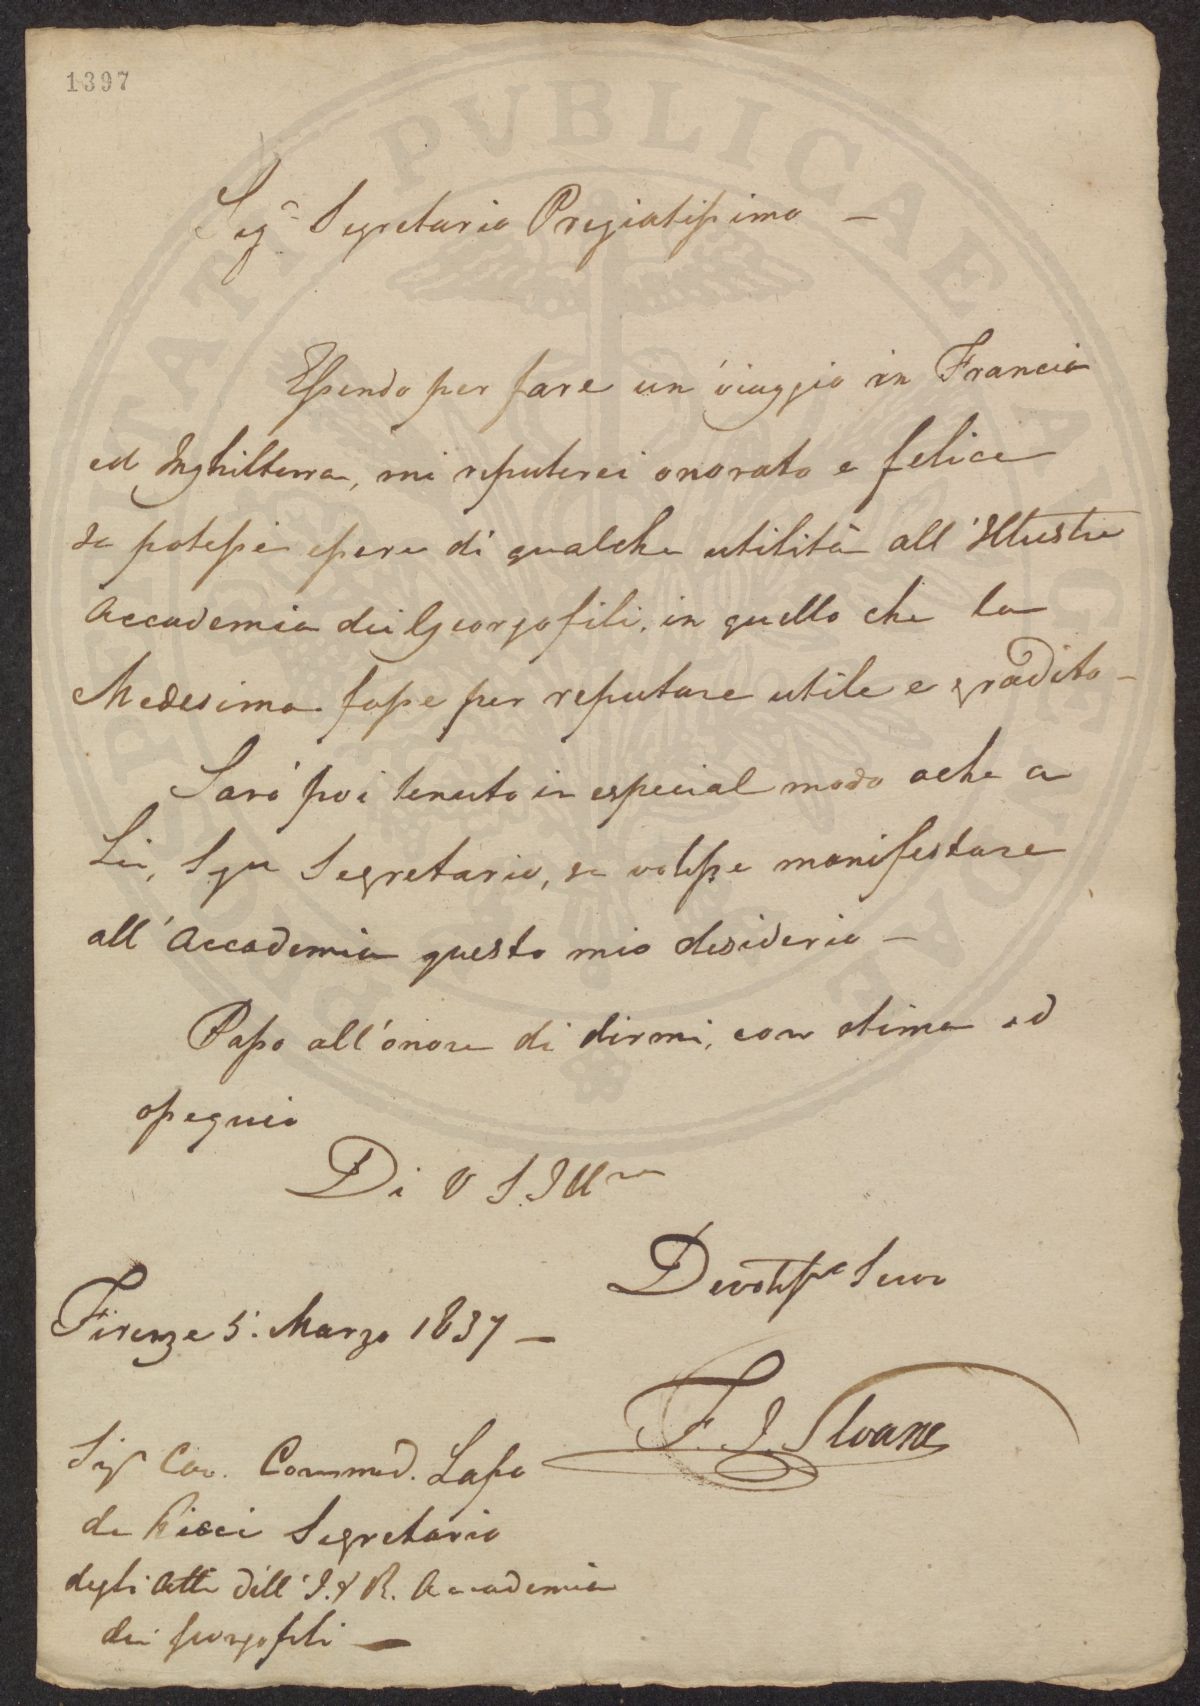 1397
Sigr Segretario Pregiatissimo —
Essendo per fare un viaggio in Francia
ed Inghilterra, mi reputerei onorato e felice
se potessi essere di qualche utilità all'Illustre
Accademia dei Georgofili, in quello che la
Medesima fosse per reputare utile e gradito —
Sarò poi tenuto in especial modo ache a
Lei, Sigre Segretario, se volesse manifestare
all'Accademia questo mio desiderio —
Passo all'onore di dirmi, con stima ed
ossequio
Di V S. Illma
Devotissmo Servo
Firenze 5. Marzo 1837 —
F. J. Sloane
Sigr Cav. Commend. Lapo
de Ricci Segretario
degli Atti dell'I. e R. Accademia
dei Georgofili —